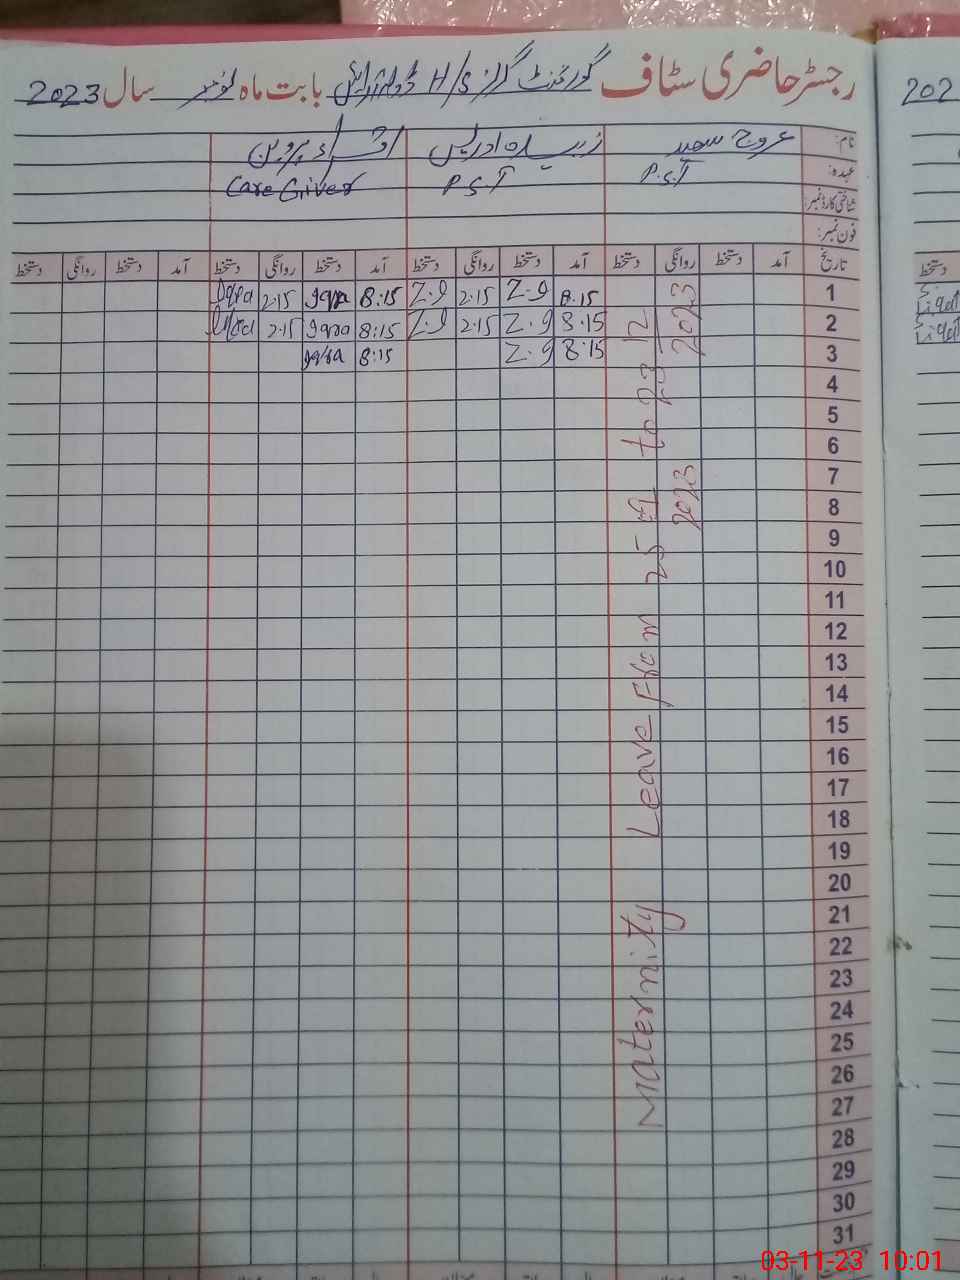 رجسٹر حاضری سٹاف گورنمنٹ گرلز H/S بابت ماہ نومبر سال 2023
202
نام: عروج سعید زبیدہ ادریس اقراء پروین
عہدہ: P.S.T P.S.T Care Giver
شناختی کارڈ نمبر:
فون نمبر:
تاریخ آمد دستخط روانگی دستخط آمد دستخط روانگی دستخط آمد دستخط روانگی دستخط آمد دستخط روانگی دستخط
دستخط
1 8.15 Z.9 2.15 Z.9 8:15 Iqra 2.15 Iqra
2 8.15 Z.9 2.15 Z.9 8:15 Iqra 2.15
3 8.15 Z.9 8:15 Iqra
4
5
6
7
8
9
10
11
12
13
14
15
16
17
18
19
20
21
22
23
24
25
26
27
28
29
30
31
Maternity Leave From 25 2023 to 23 12 2023
03-11-23 10:01